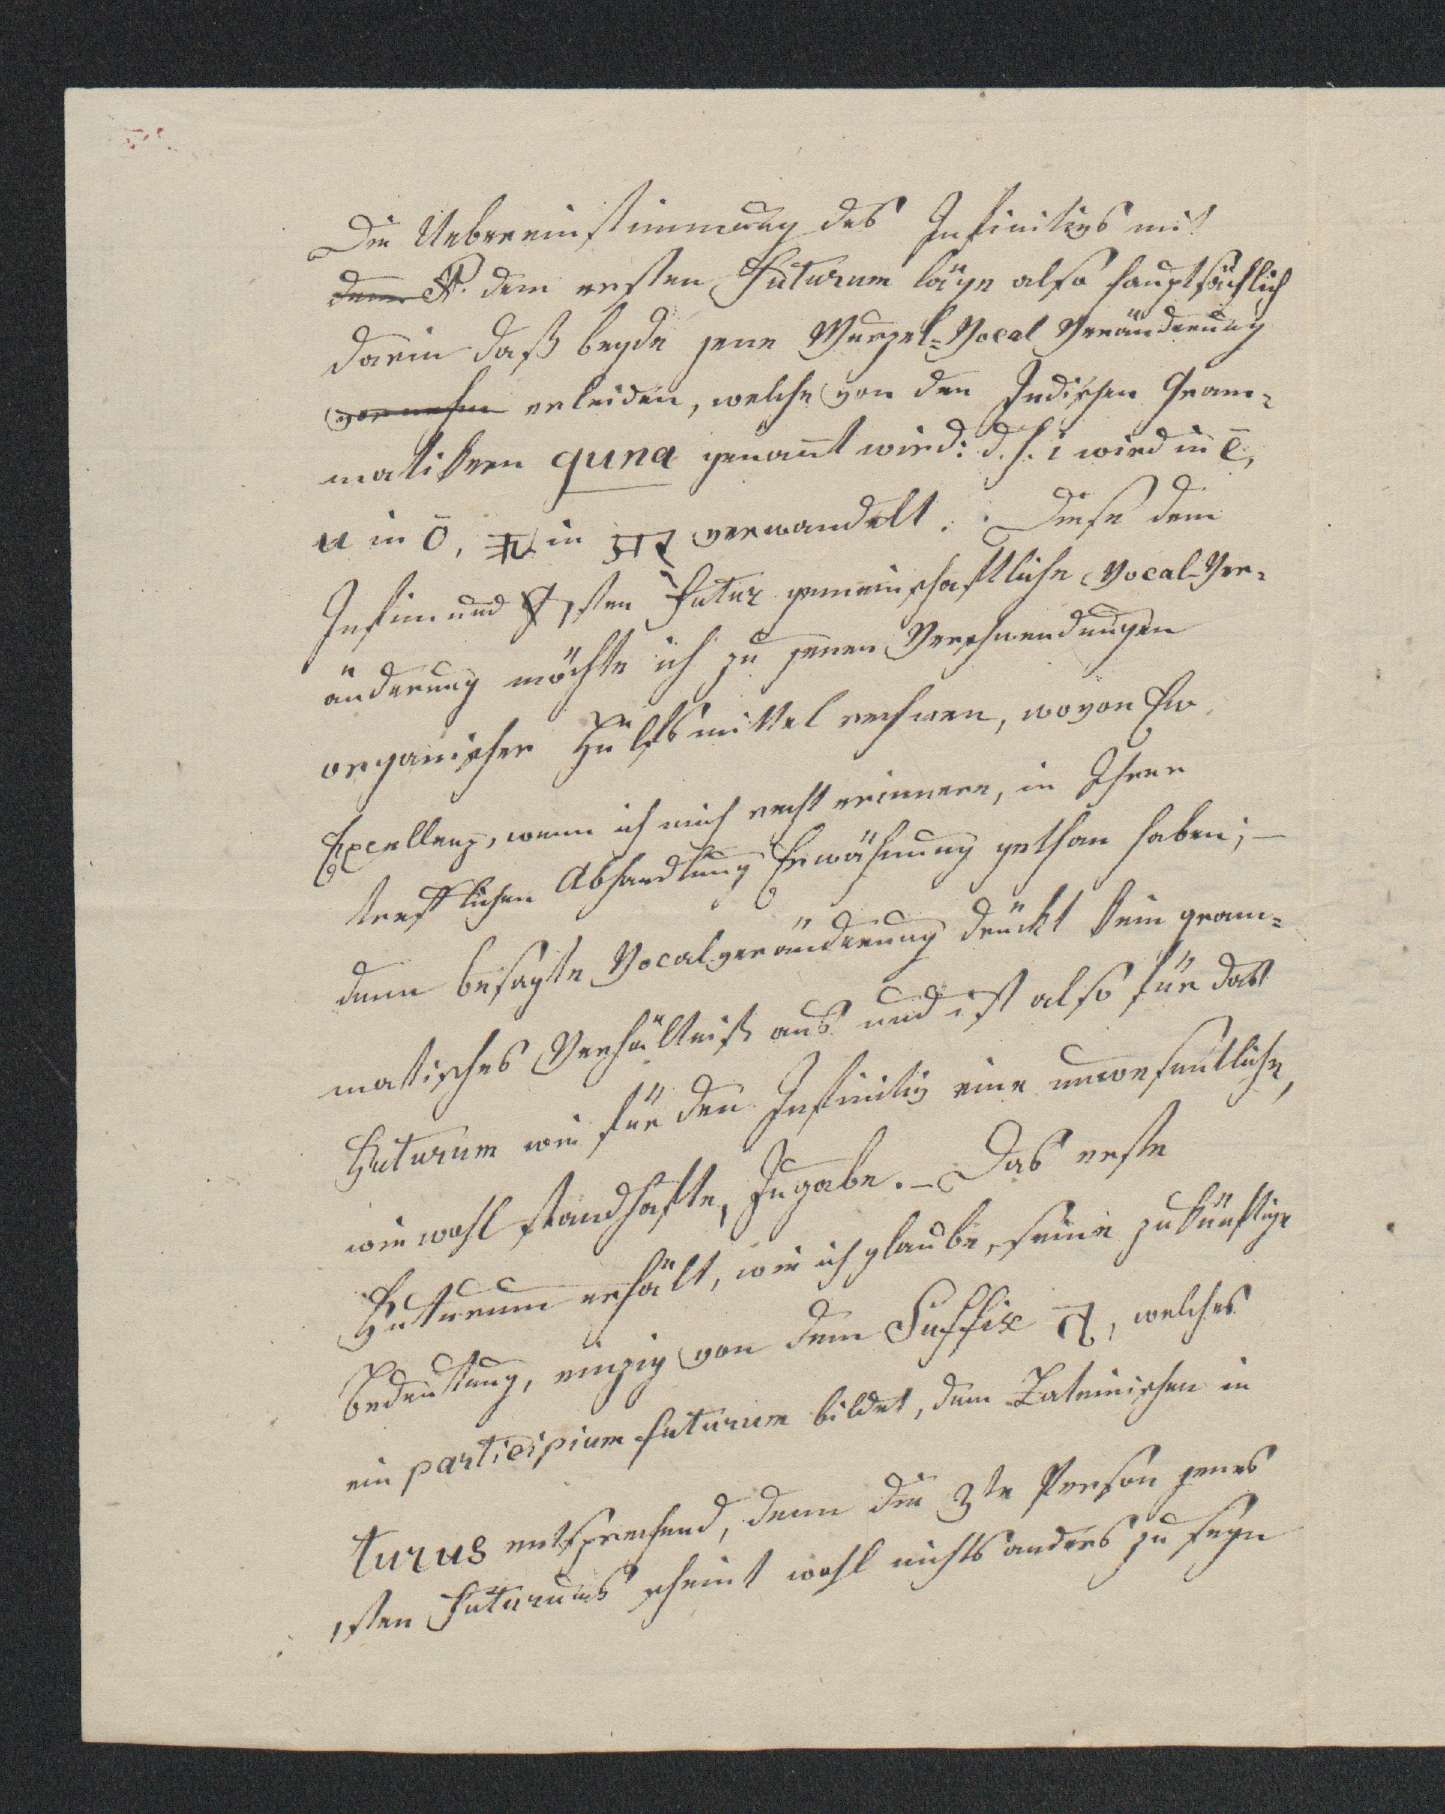 Die Uebereinstimmung des Infinitivs mit
dem P. dem ersten Futurum läge also hauptsächlich
darin daß beyde jene Wurzel-Vocal Veränderung
vornehm erleiden, welche von den Indischen Gram-
matikern guna genant wird: d. h. i wird in ē,
u in ō, ऋ in अर् verwandelt. Diese dem
Infin und 1sten Futur gemeinschaftliche Vocal-Ver-
änderung möchte ich zu jenen Verschwendungen
organischer Hülfsmittel rechnen, wovon Ew
Excellenz, wenn ich mich recht erinnere, in Ihrer
trefflichen Abhandlung Erwähnung gethan haben; —
denn besagte Vocalveränderung drückt kein gram-
matisches Verhältniß aus und ist also für das
Futurum wie für den Infinitiv eine unwesentliche,
wiewohl standhafte, Zugabe. — Das erste
Futurum erhält, wie ich glaube, seine zukünftige
Bedeutung, einzig von dem Suffix तृ, welches
ein participium futurum bildet, dem Lateinischen in
turus entsprechend, denn die 3te Person jenes
1sten Futurums scheint wohl nichts anders zu seyn